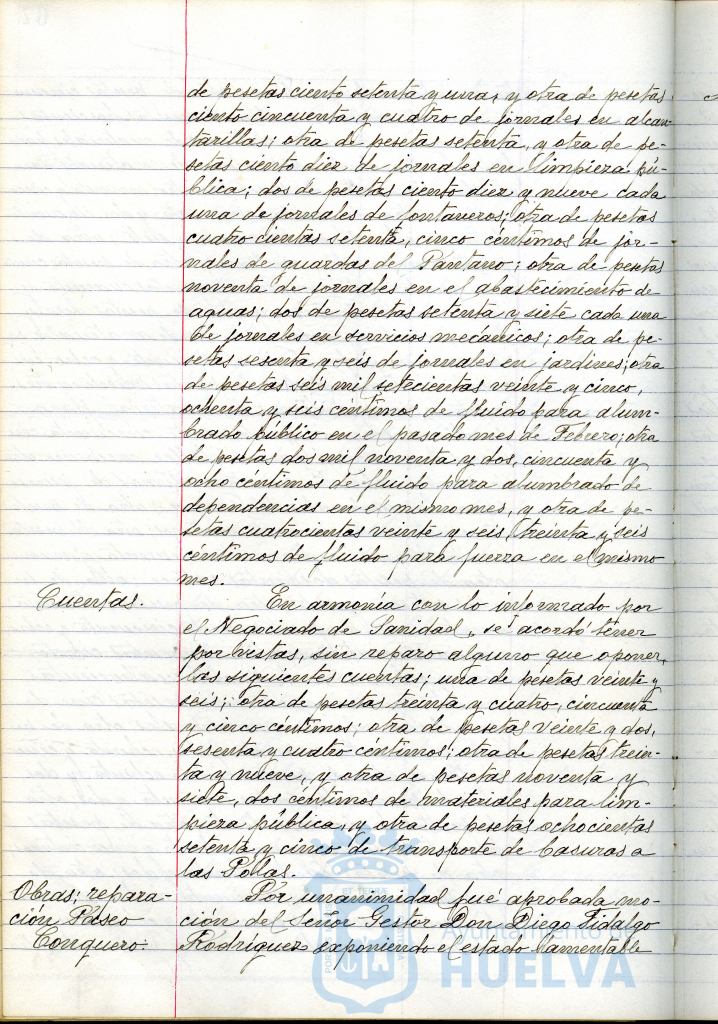 de pesetas ciento setenta y una, y otra de pesetas
ciento cincuenta y cuatro de jornales en alcan-
tarillas; otra de pesetas setenta, y otra de pe-
setas ciento diez de jornales en limpieza pú-
blica; dos de pesetas ciento diez y nueve cada
una de jornales de fontaneros; otra de pesetas
cuatro cientas setenta, cinco céntimos de jor-
nales de guardas del Pantano; otra de pesetas
noventa de jornales en el abastecimiento de
aguas; dos de pesetas setenta y siete cada una
de jornales en servicios mecánicos; otra de pe-
setas sesenta y seis de jornales en jardines; otra
de pesetas seis mil setecientas veinte y cinco,
ochenta y seis céntimos de fluido para alum-
brado público en el pasado mes de Febrero; otra
de pesetas dos mil noventa y dos, cincuenta y
ocho céntimos de fluido para alumbrado de
dependencias en el mismo mes, y otra de pe-
setas cuatrocientas veinte y seis, treinta y seis
céntimos de fluido para fuerza en el mismo
mes.
Cuentas. En armonía con lo informado por
el Negociado de Sanidad, se acordó tener
por vistas, sin reparo alguno que oponer,
las siguientes cuentas; una de pesetas veinte y
seis; otra de pesetas treinta y cuatro, cincuenta
y cinco céntimos; otra de pesetas veinte y dos,
sesenta y cuatro céntimos; otra de pesetas trein-
ta y nueve, y otra de pesetas noventa y
siete, dos céntimos de materiales para lim-
pieza pública, y otra de pesetas ochocientas
setenta y cinco de transporte de basuras a
las Pollas.
Obras; repara- Por unanimidad fué aprobada mo-
ción Paseo ción del Señor Gestor Don Diego Fidalgo
Conquero. Rodríguez exponiendo el estado lamentable
Ayuntamiento de
HUELVA